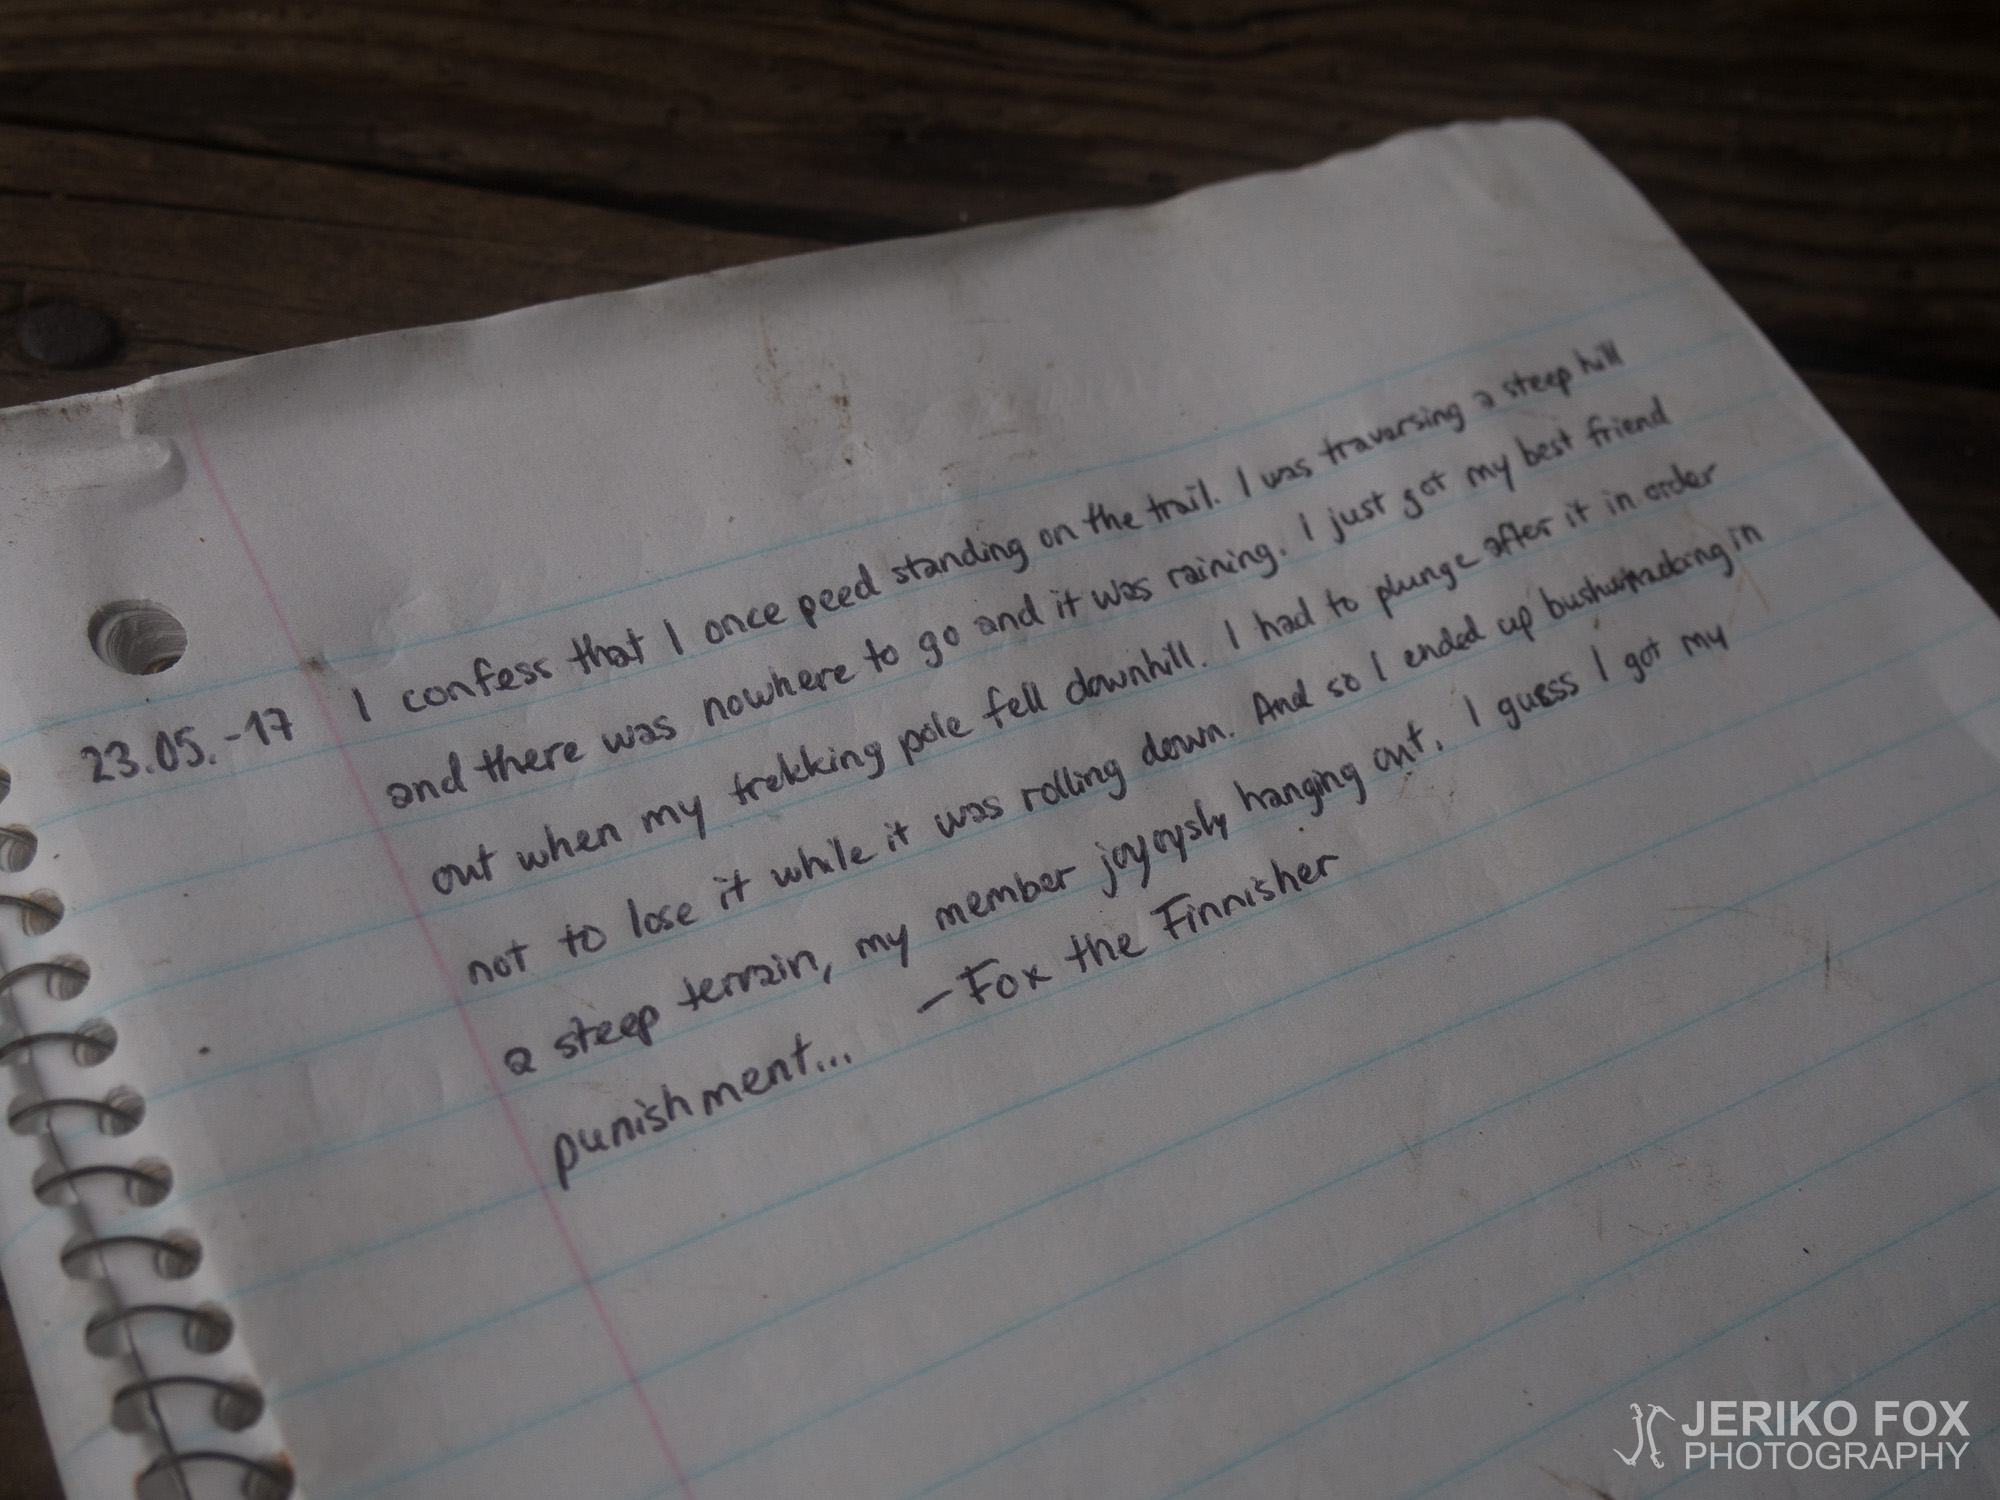 23.05.-17 I confess that I once peed standing on the trail. I was traversing a steep hill
and there was nowhere to go and it was raining. I just got my best friend
out when my trekking pole fell downhill. I had to plunge after it in order
not to lose it while it was rolling down. And so I ended up in
a steep terrain, my member joyoysly hanging out. I guess I got my
punishment... -Fox the Finnisher
JERIKO FOX
PHOTOGRAPHY